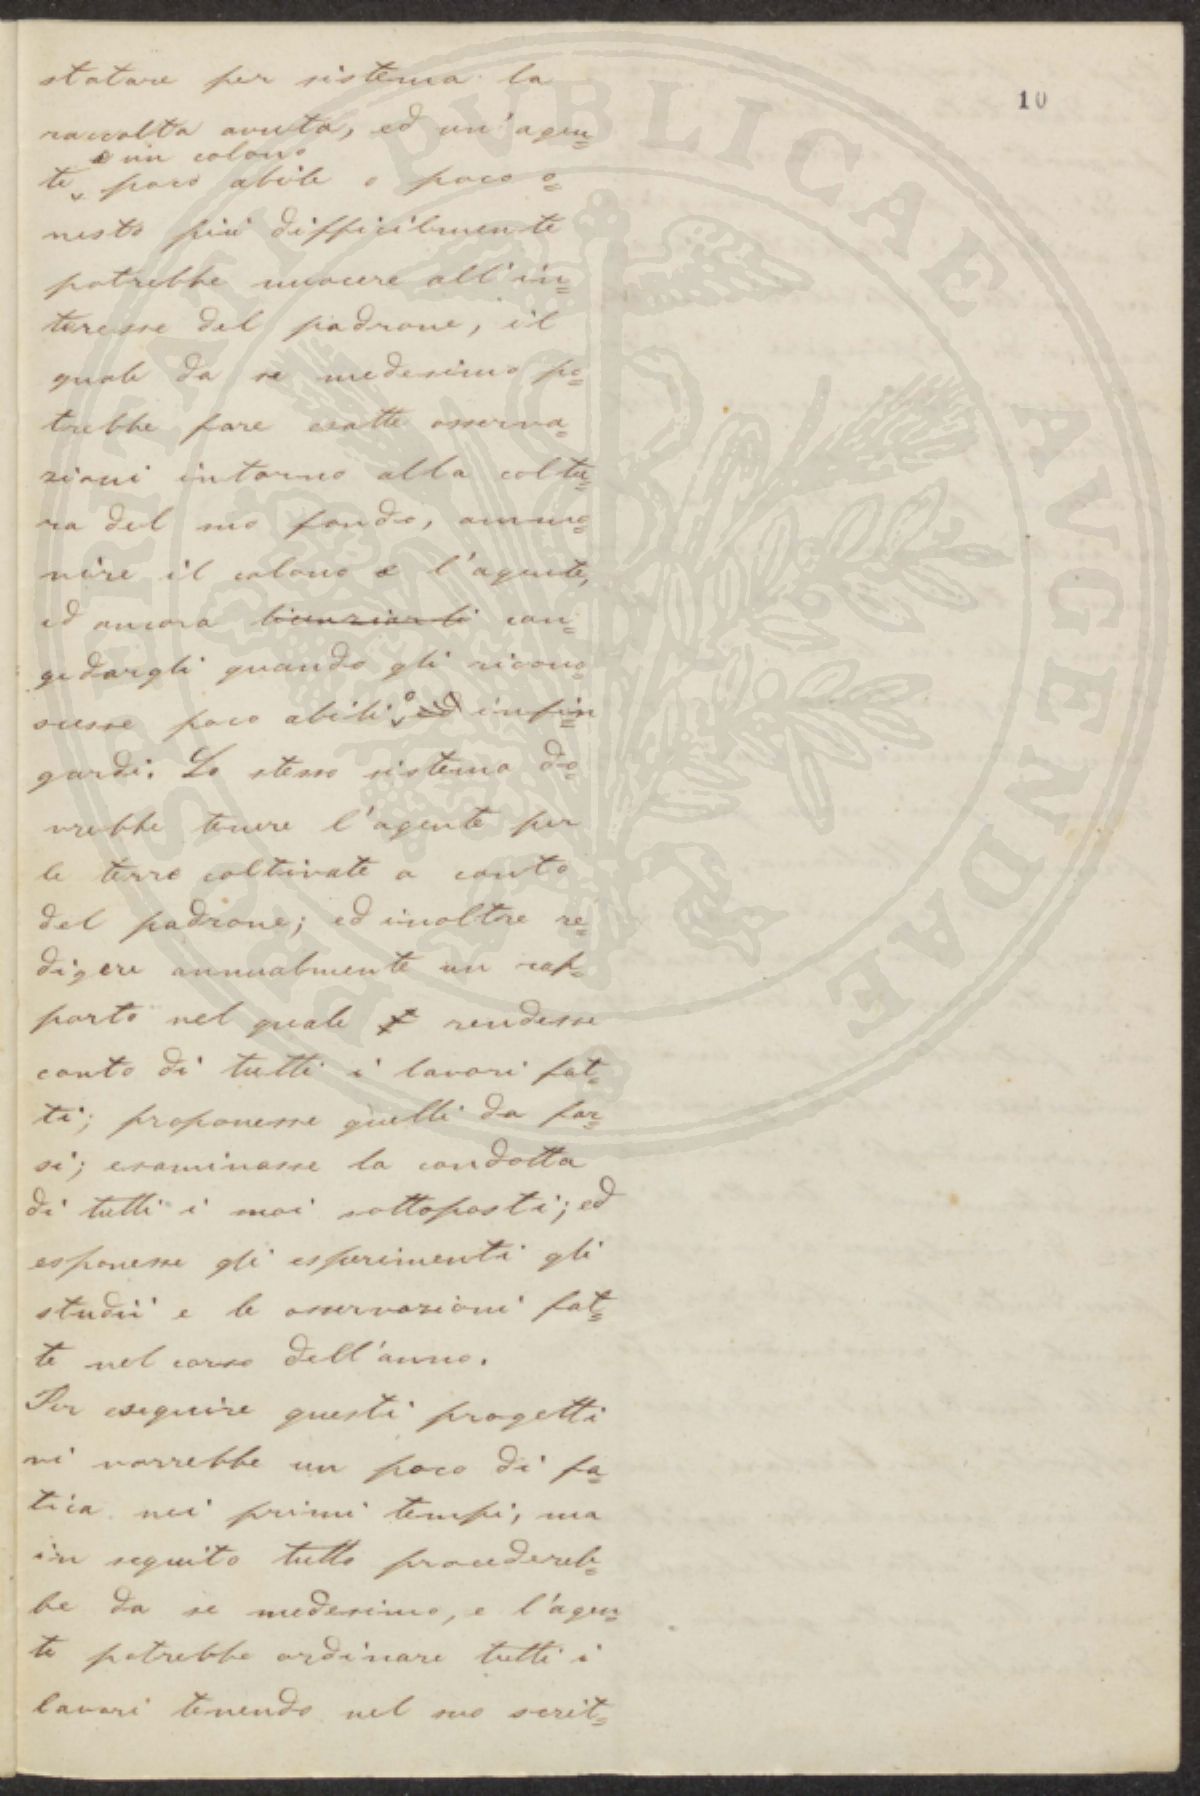 10
statare per sistema la
raccolta avuta, ed un' agen=
o un colono
te poco abile o poco o=
nesto più difficilmente
potrebbe nuocere all' in=
teresse del padrone, il
quale da se medesimo po=
trebbe fare esatte osserva=
zioni intorno alla coltu=
ra del suo fondo, ammo=
nire il colono e l'agente,
ed ancora licenziarli con=
gedargli quando gli ricono=
scesse poco abili o ed infin
gardi. Lo stesso sistema do=
vrebbe tenere l'agente per
le terre coltivate a conto
del padrone; ed inoltre re=
digere annualmente un rap=
porto nel quale rendesse
conto di tutti i lavori fat=
ti; proponesse quelli da far=
si; esaminasse la condotta
di tutti i suoi sottoposti; ed
esponesse gli esperimenti gli
studii e le osservazioni fat=
te nel corso dell'anno.
Per eseguire questi progetti
vi vorrebbe un poco di fa=
tica nei primi tempi, ma
in seguito tutto procedereb=
be da se medesimo, e l'agen=
te potrebbe ordinare tutti i
lavori tenendo nel suo scrit=
PROSPERITATI PVBLICAE AVGENDAE